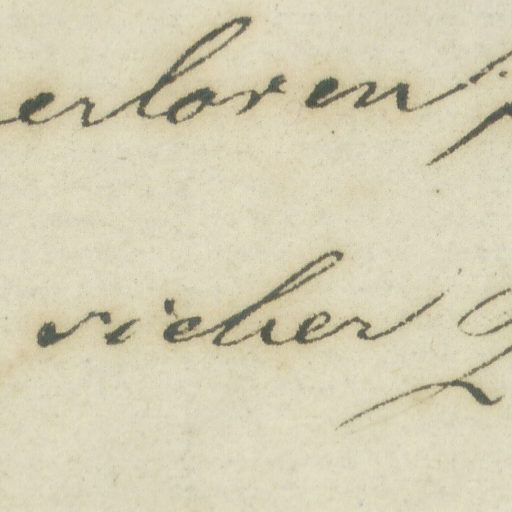 erloren
sicher